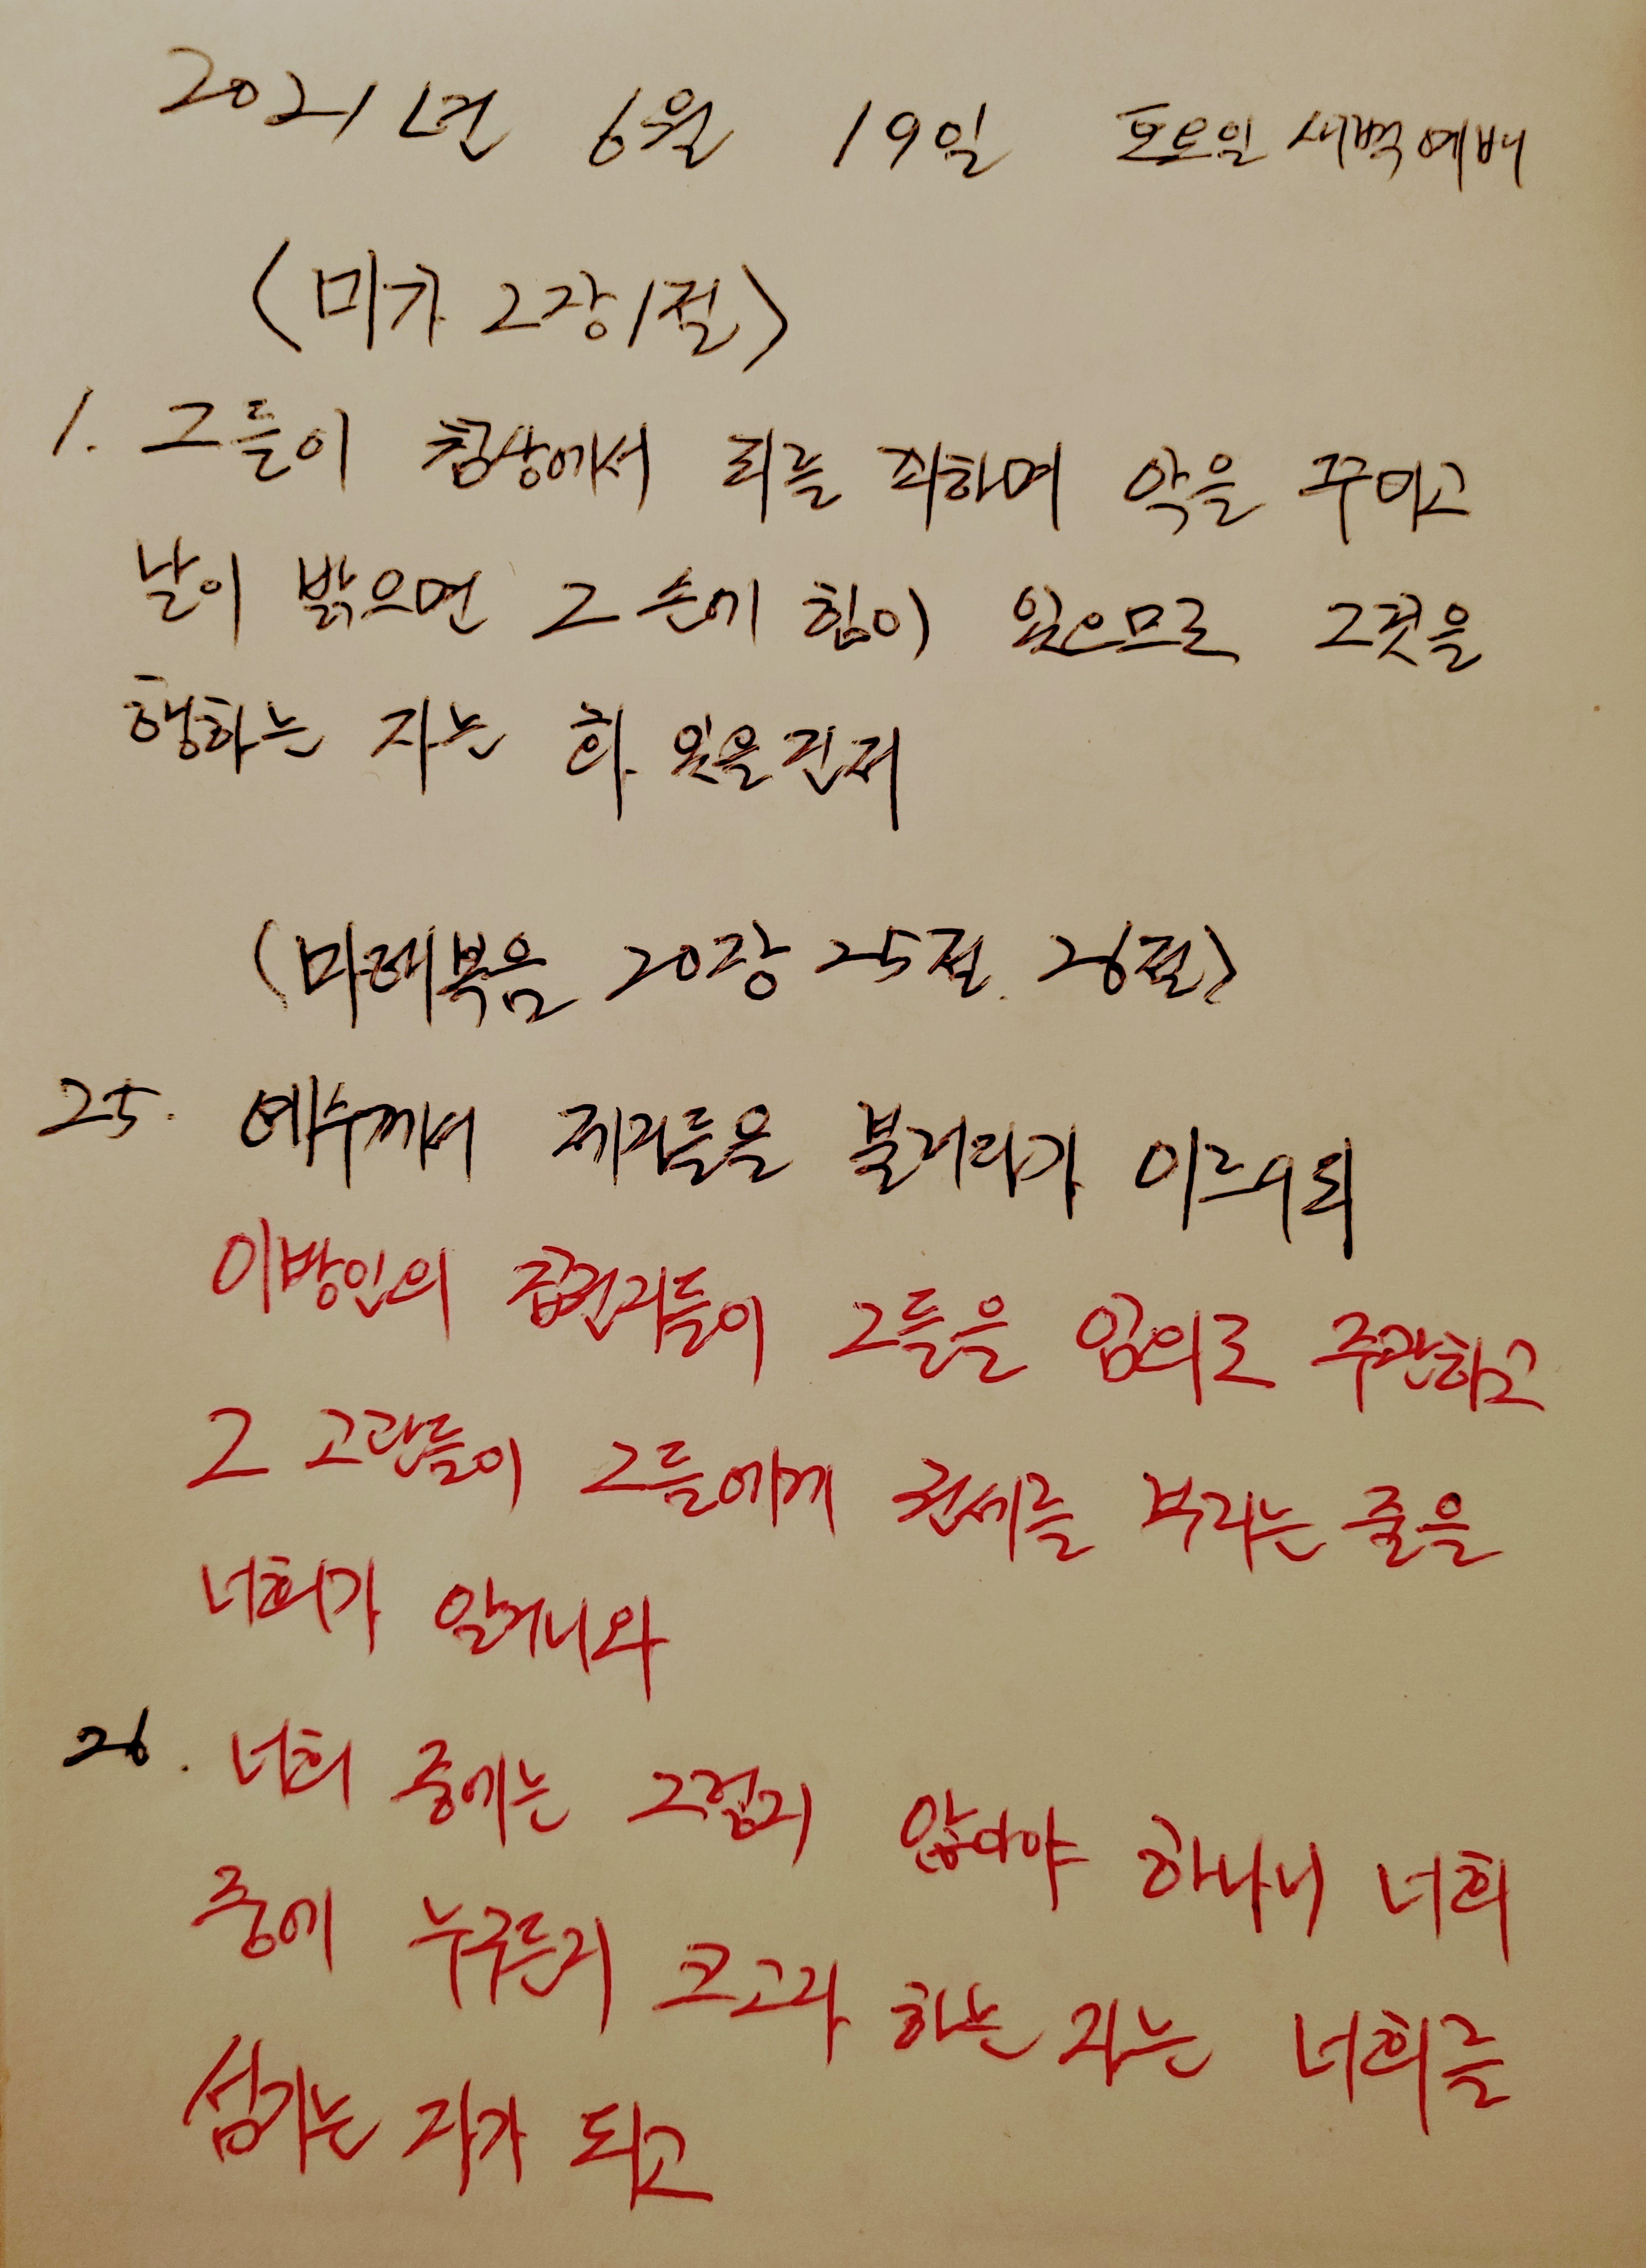 2021년 6월 19일 토요일 새벽예배
<미가 2장1절>
1. 그들이 침상에서 죄를 꾀하며 악을 꾸미고
날이 밝으면 그 손에 힘이 있으므로 그것을
행하는 자는 화 있을진저
(마태복음 20장 25절. 26절>
25. 예수께서 제자들을 불러다가 이르시되
이방인의 집권자들이 그들을 임의로 주관하고
그 고관들이 그들에게 권세를 부리는 줄을
너희가 알거니와
26. 너희 중에는 그렇지 않아야 하나니 너희
중에 누구든지 크고자 하는 자는 너희를
섬기는 자가 되고